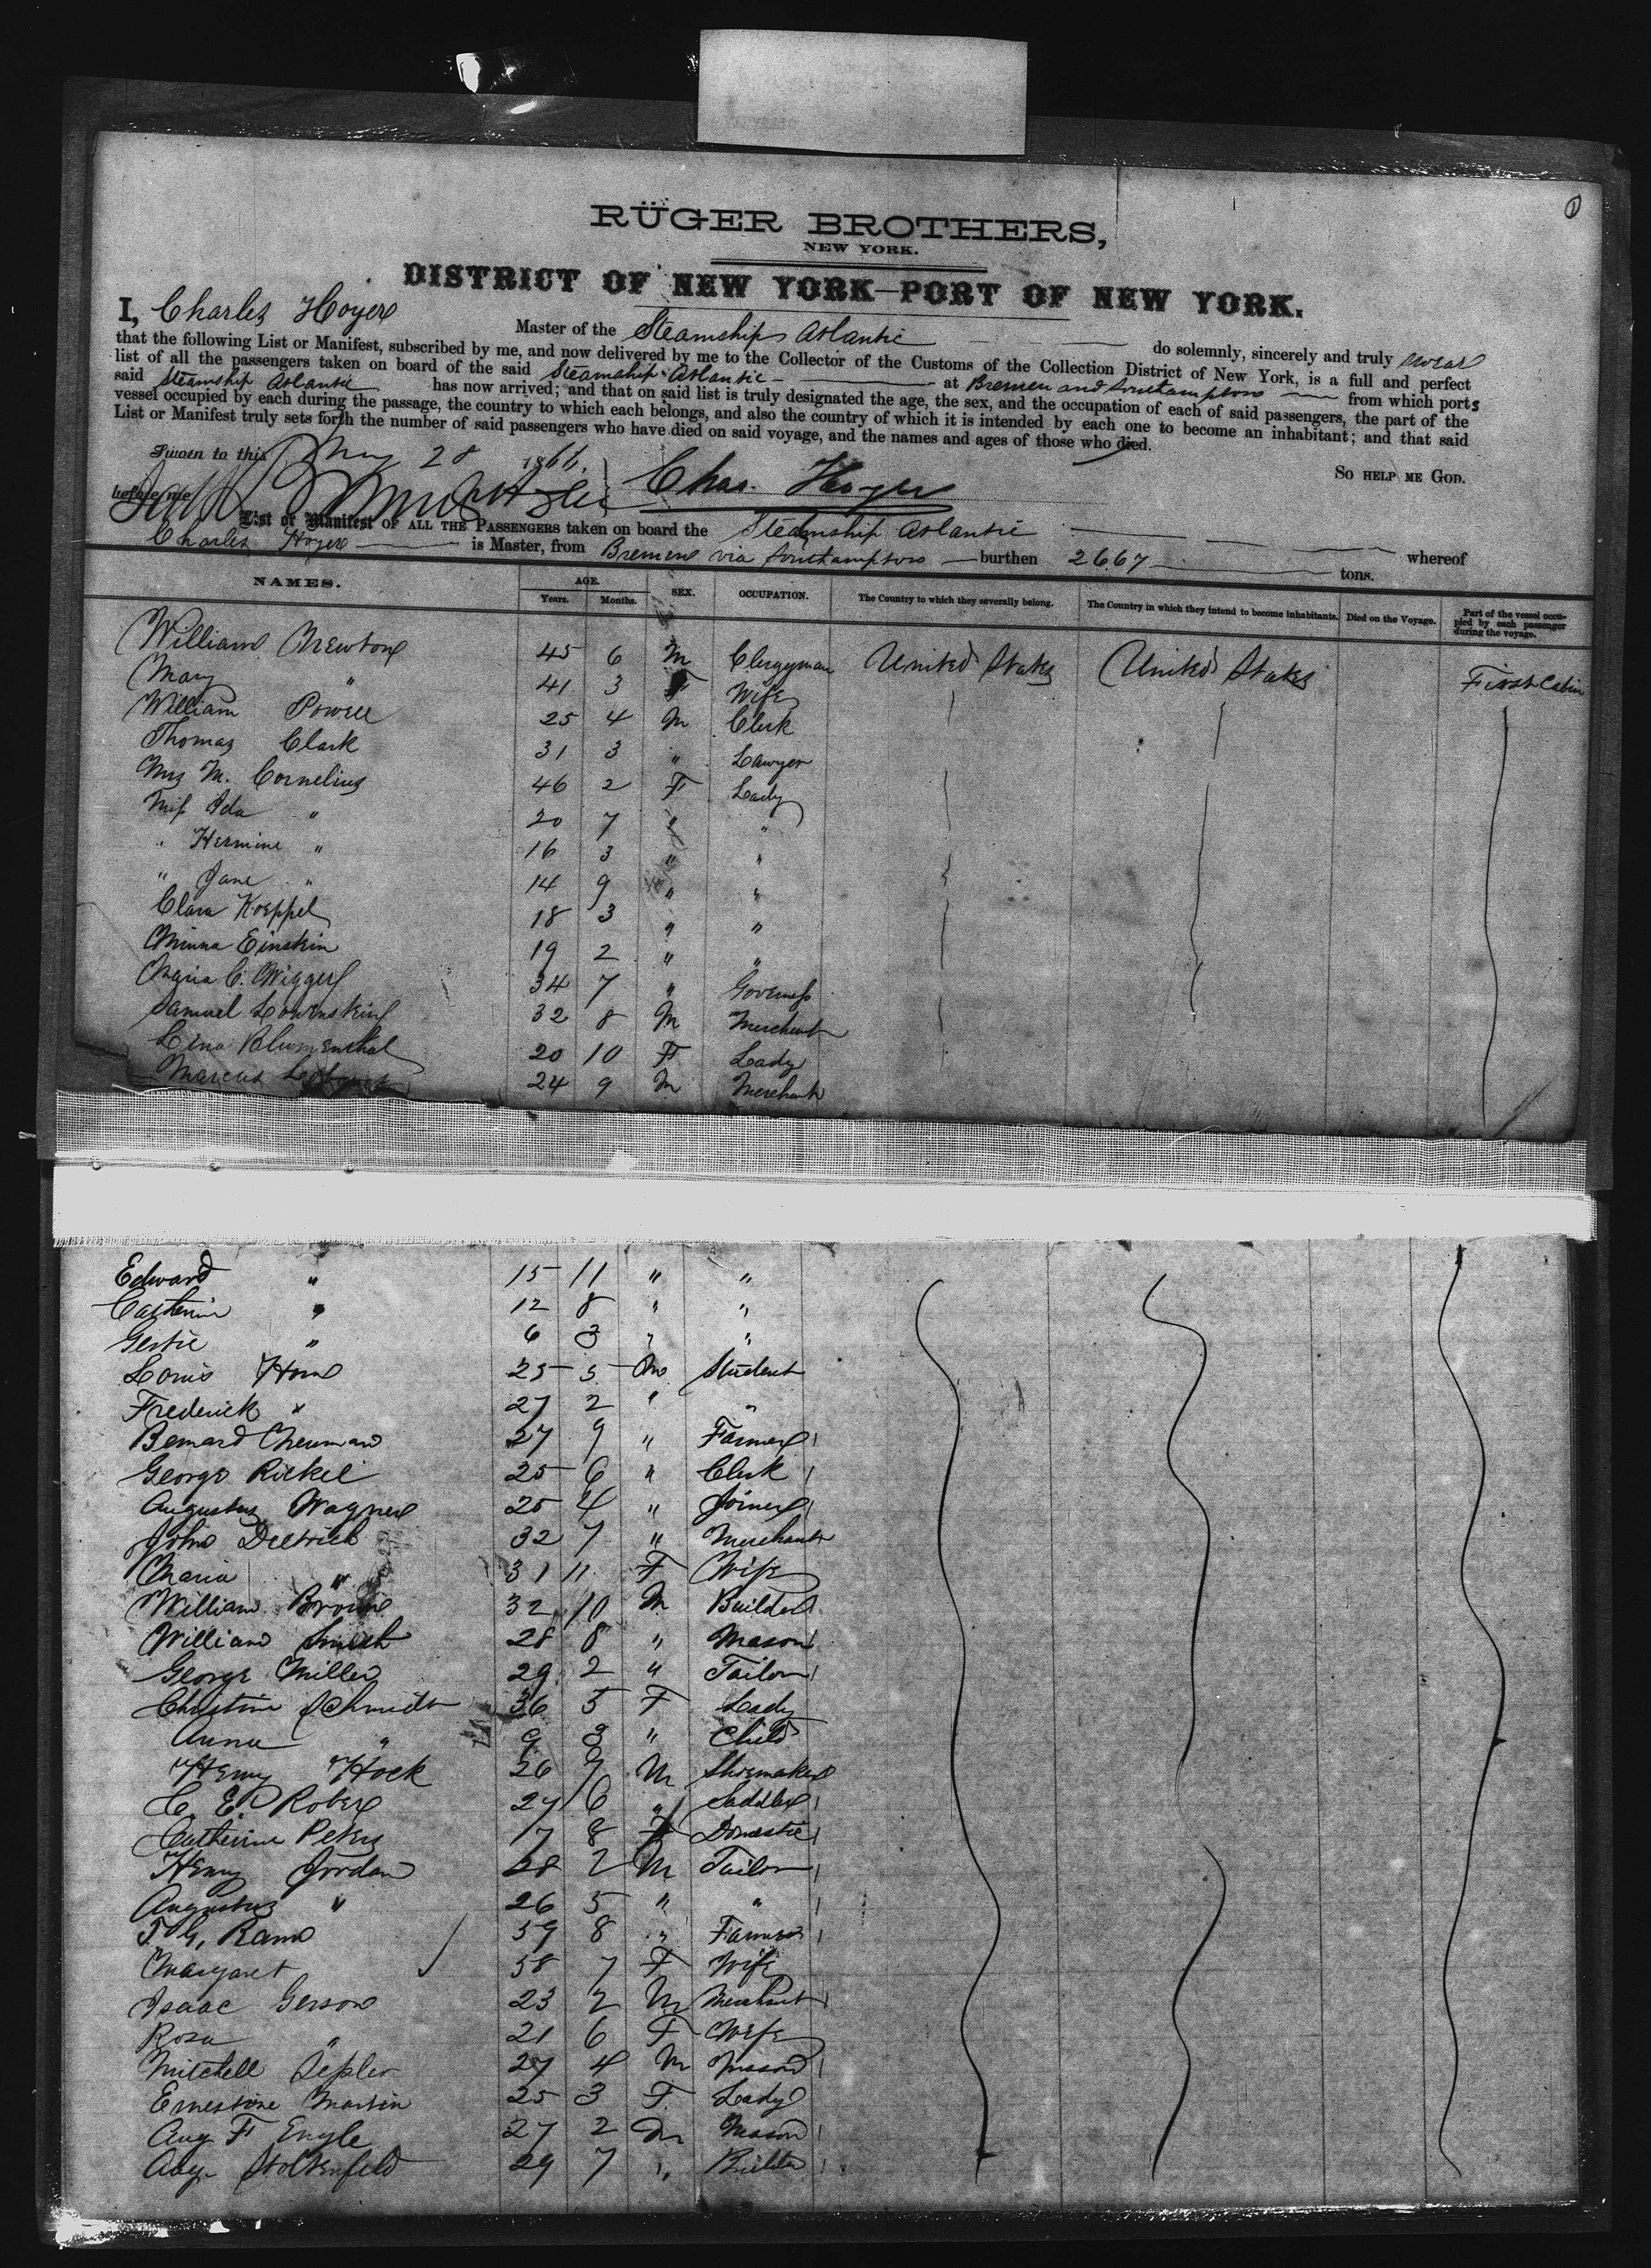 RÜGER BROTHERS,
NEW YORK.
DISTRICT OF NEW YORK—PORT OF NEW YORK.
I, Charles Hoyer Master of the Steamship Atlantic do solemnly, sincerely and truly swear
that the following List or Manifest, subscribed by me, and now delivered by me to the Collector of the Customs of the Collection District of New York, is a full and perfect
list of all the passengers taken on board of the said Steamship Atlantic at Bremen and Southampton from which ports
said Steamship Atlantic has now arrived; and that on said list is truly designated the age, the sex, and the occupation of each of said passengers, the part of the
vessel occupied by each during the passage, the country to which each belongs, and also the country of which it is intended by each one to become an inhabitant; and that said
List or Manifest truly sets forth the number of said passengers who have died on said voyage, and the names and ages of those who died.
SO HELP ME GOD.
Sworn to this May 28 1866.
before me Chas. Hoyer
List or Manifest OF ALL THE PASSENGERS taken on board the Steamship Atlantic whereof
Charles Hoyer is Master, from Bremen via Southampton burthen 2667 tons.
NAMES. AGE. SEX. OCCUPATION. The Country to which they severally belong. The Country in which they intend to become inhabitants. Died on the Voyage. Part of the vessel occupied by each passenger during the voyage.
Years. Months.
William Newton 45 6 M Clergyman United States United States First Cabin
Mary " 41 3 F Wife
William Powell 25 4 M Clerk
Thomas Clark 31 3 " Lawyer
Mrs M. Cornelius 46 2 F Lady
Miss Ida " 20 7 " "
" Hermine " 16 3 " "
" Jane " 14 9 " "
Clara Koeppel 18 3 " "
Minna Einstein 19 2 " "
Maria C. Wiggers 34 7 " Governess
Samuel 32 8 M Merchant
Lina Blumenthal 20 10 F Lady
Marcus 24 9 M Merchant
Edward " 15 11 " "
Catherin " 12 8 " "
Gertie " 6 3 " "
Louis Horn 25 5 M Student
Frederick " 27 2 " "
Bernard Neuman 27 9 " Farmer
George Rickel 25 6 " Clerk
Augustus Wagner 25 4 " Joiner
John Dietrich 32 7 " Merchant
Maria " 31 11 F Wife
William Brown 32 10 M Builder
William Smith 28 8 " Mason
George Miller 29 2 " Tailor
Christine Schmidt 36 5 F Lady
Anna " 9 3 " Child
Henry Hock 26 9 M Shoemaker
C. E. Rober 27 6 " Saddler
Catherine Peters 17 8 F Domestic
Henry Jordan 28 2 M Tailor
Augustus " 26 5 " "
T. G. Ramo 59 8 " Farmer
Margaret 58 7 F Wife
Isaac Gerson 23 2 M Merchant
Rosa " 21 6 F Wife
Mitchell 27 4 M Mason
Ernestine Martin 25 3 F Lady
Aug F Engle 27 2 M Mason
Aug. Stoltenfeld 29 7 " Builder